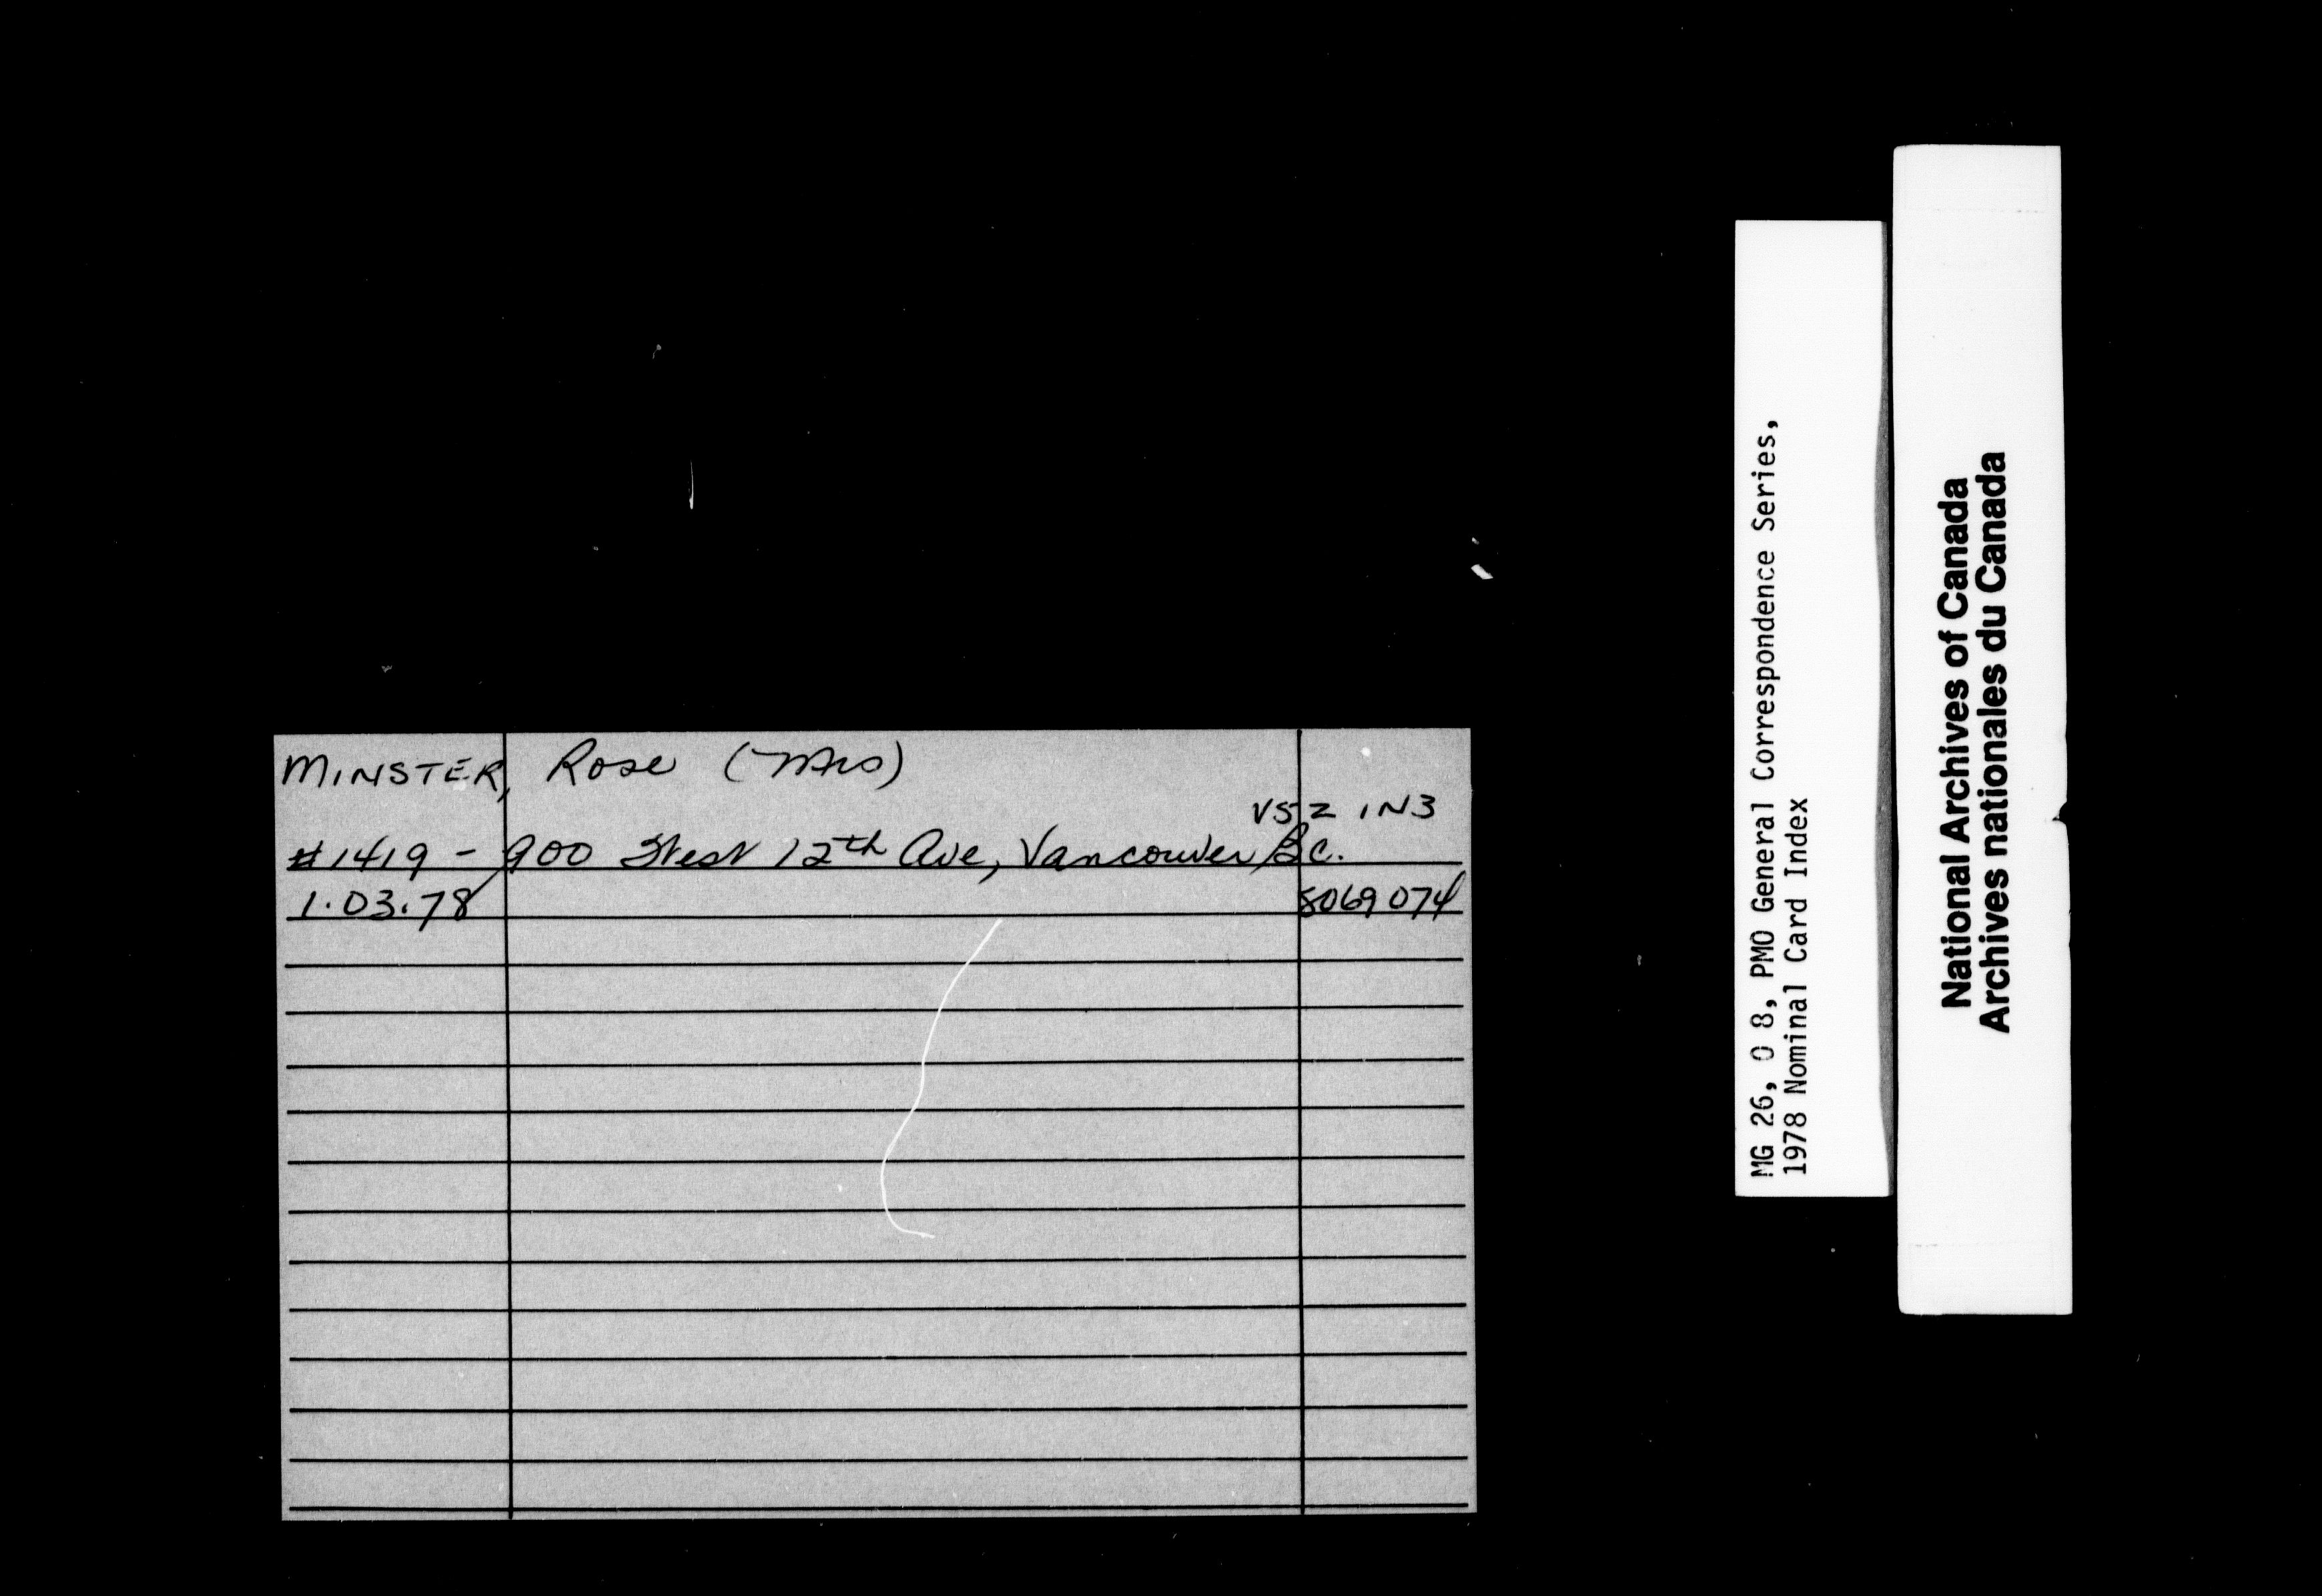 MINSTER, Rose (Mrs)
V5Z 1N3
#1419 - 900 West 12th Ave, Vancouver, B.C.
1.03.78 8069074
MG 26, O 8, PMO General Correspondence Series,
1978 Nominal Card Index
National Archives of Canada
Archives nationales du Canada